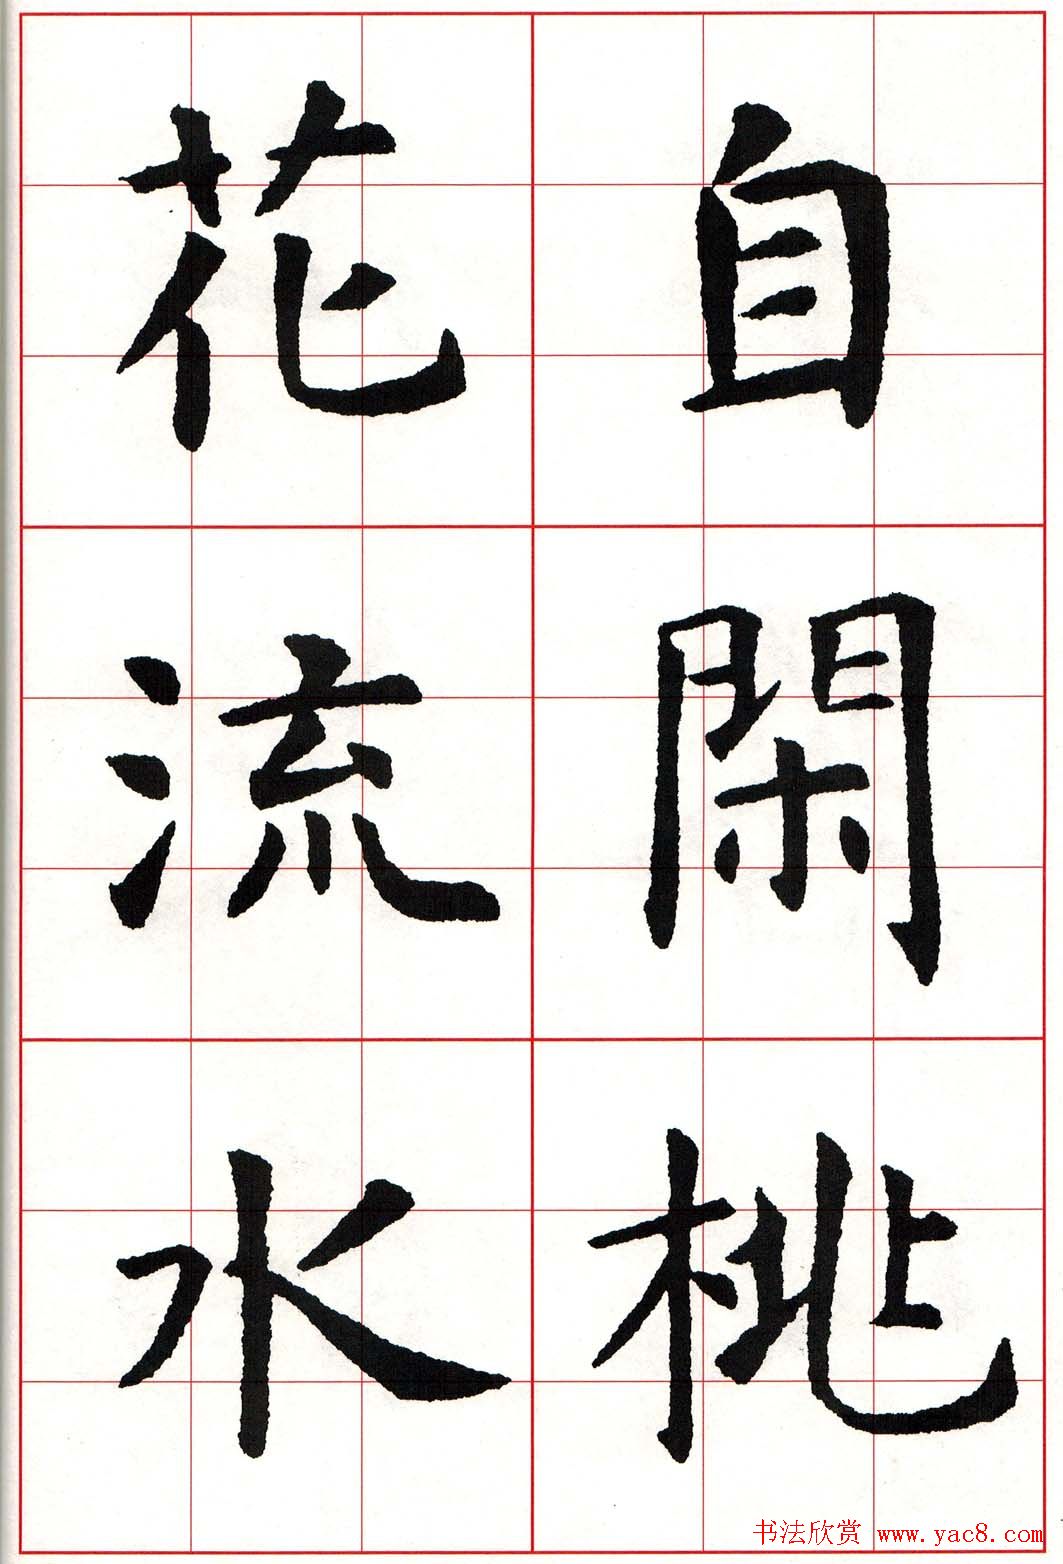 自閑桃
花流水
书法欣赏 www.yac8.com